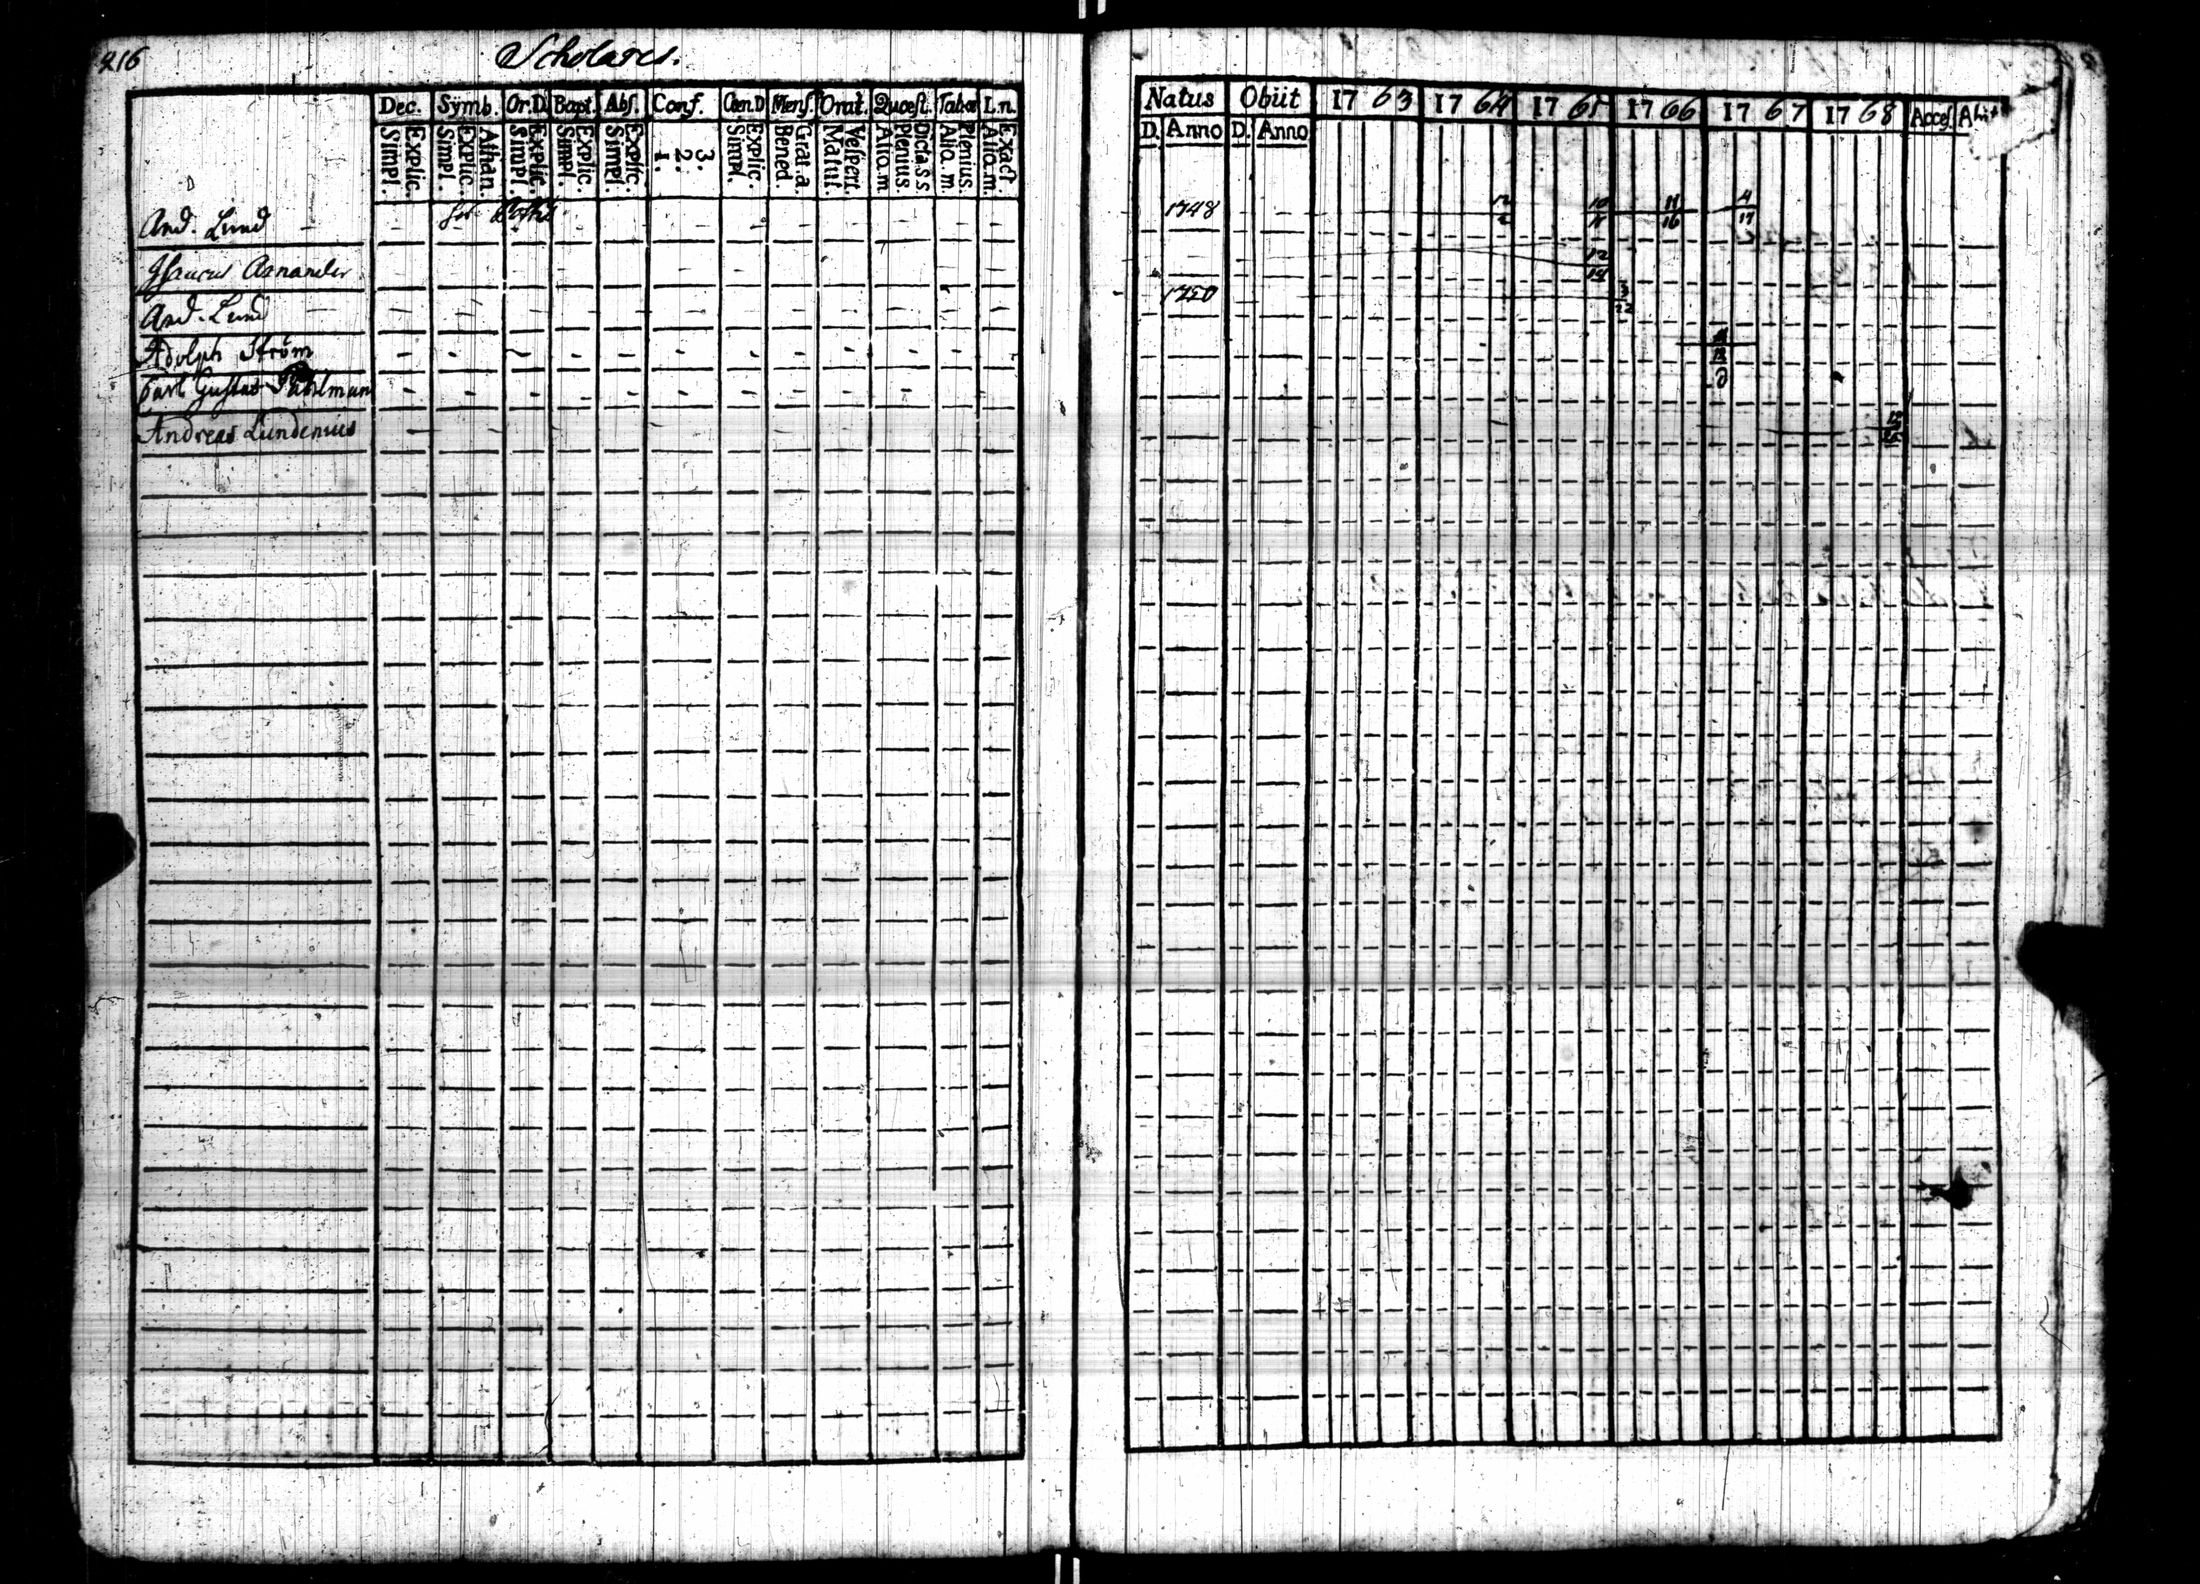 216 Scholares.
Dec. Symb. Or.D. Bapt. Abs. Conf. Cœn.D Mens. Orat. Quæst. Tabœ I.n.
Explic. Simpl. Athan. Explic. Simpl. Explic. Simpl. Explic. Simpl. Explic. Simpl. 3. 2. 1. Explic. Simpl. Grat. a. Bened. Vespert. Matut. Dicta.s.s. Plenius. Aliq.m. Plenius. Aliq.m. Exact. Aliq.m.
And. Lund
And. Lund
Adolph Ström
Carl Gustaf
Andreas Lundenius
Natus Obiit 1763 1764 1765 1766 1767 1768 Acces. Abit
D. Anno D. Anno
1748 12 10 11 4
2 11 16 17
12
14
1750 3
22